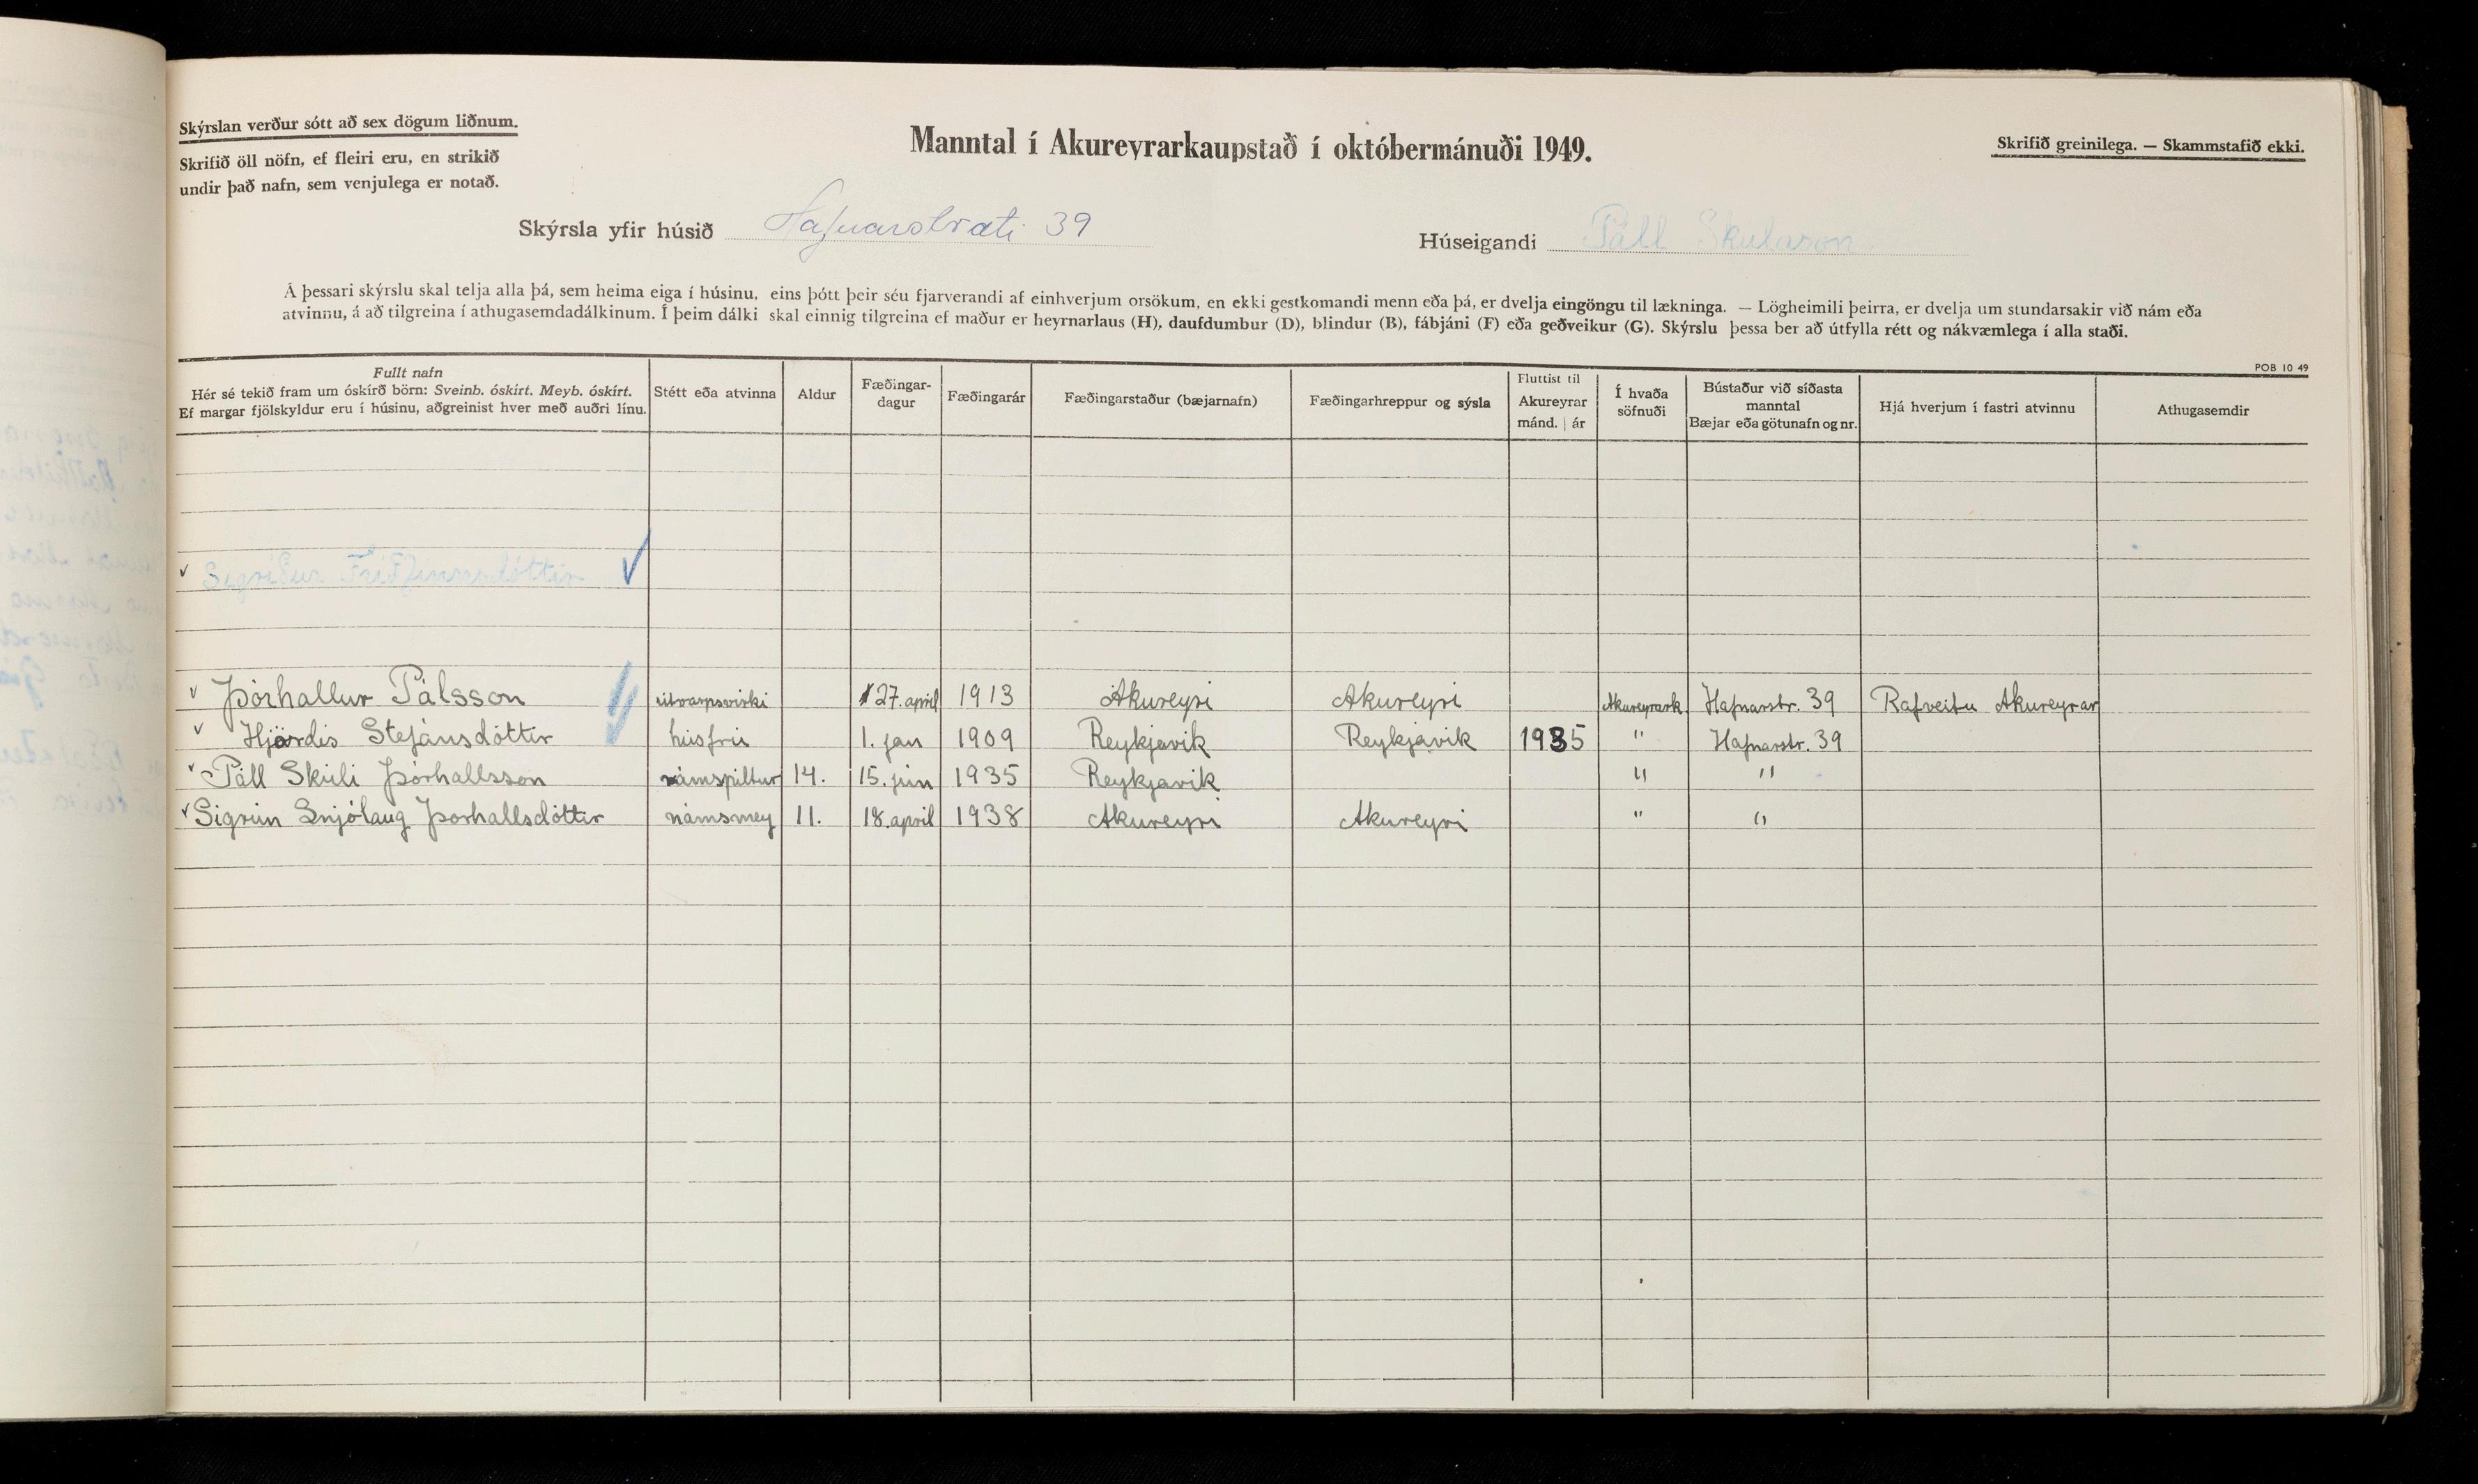 Skýrslan verður sótt að sex dögum liðnum.
Skrifið öll nöfn, ef fleiri eru, en strikið
undir það nafn, sem venjulega er notað.
Manntal í Akureyrarkaupstað í októbermánuði 1949.
Skrifið greinilega. — Skammstafið ekki.
Skýrsla yfir húsið Hafnarstræti 39
Húseigandi Páll Skúlason
Á þessari skýrslu skal telja alla þá, sem heima eiga í húsinu, eins þótt þeir séu fjarverandi af einhverjum orsökum, en ekki gestkomandi menn eða þá, er dvelja eingöngu til lækninga. — Lögheimili þeirra, er dvelja um stundarsakir við nám eða
atvinnu, á að tilgreina í athugasemdadálkinum. Í þeim dálki skal einnig tilgreina ef maður er heyrnarlaus (H), daufdumbur (D), blindur (B), fábjáni (F) eða geðveikur (G). Skýrslu þessa ber að útfylla rétt og nákvæmlega í alla staði.
POB 10 49
Fullt nafn
Hér sé tekið fram um óskírð börn: Sveinb. óskírt. Meyb. óskírt.
Ef margar fjölskyldur eru í húsinu, aðgreinist hver með auðri línu.
Stétt eða atvinna
Aldur
Fæðingar-
dagur
Fæðingarár
Fæðingarstaður (bæjarnafn)
Fæðingarhreppur og sýsla
Fluttist til
Akureyrar
mánd. | ár
Í hvaða
söfnuði
Bústaður við síðasta
manntal
Bæjar eða götunafn og nr.
Hjá hverjum í fastri atvinnu
Athugasemdir
✓ Sigríður Friðfinnsdóttir ✓
✓ Þórhallur Pálsson útvarpsvirki 27. apríl 1913 Akureyri Akureyri Akureyrark. Hafnarstr. 39 Rafveitu Akureyrar
✓ Hjördís Stefánsdóttir húsfrú 1. jan 1909 Reykjavík Reykjavík 1935 " Hafnarstr. 39
✓ Páll Skúli Þórhallsson námspiltur 14. 15. jún 1935 Reykjavík " "
✓ Sigrún Snjólaug Þorhallsdóttir námsmey 11. 18. apríl 1938 Akureyri Akureyri " "